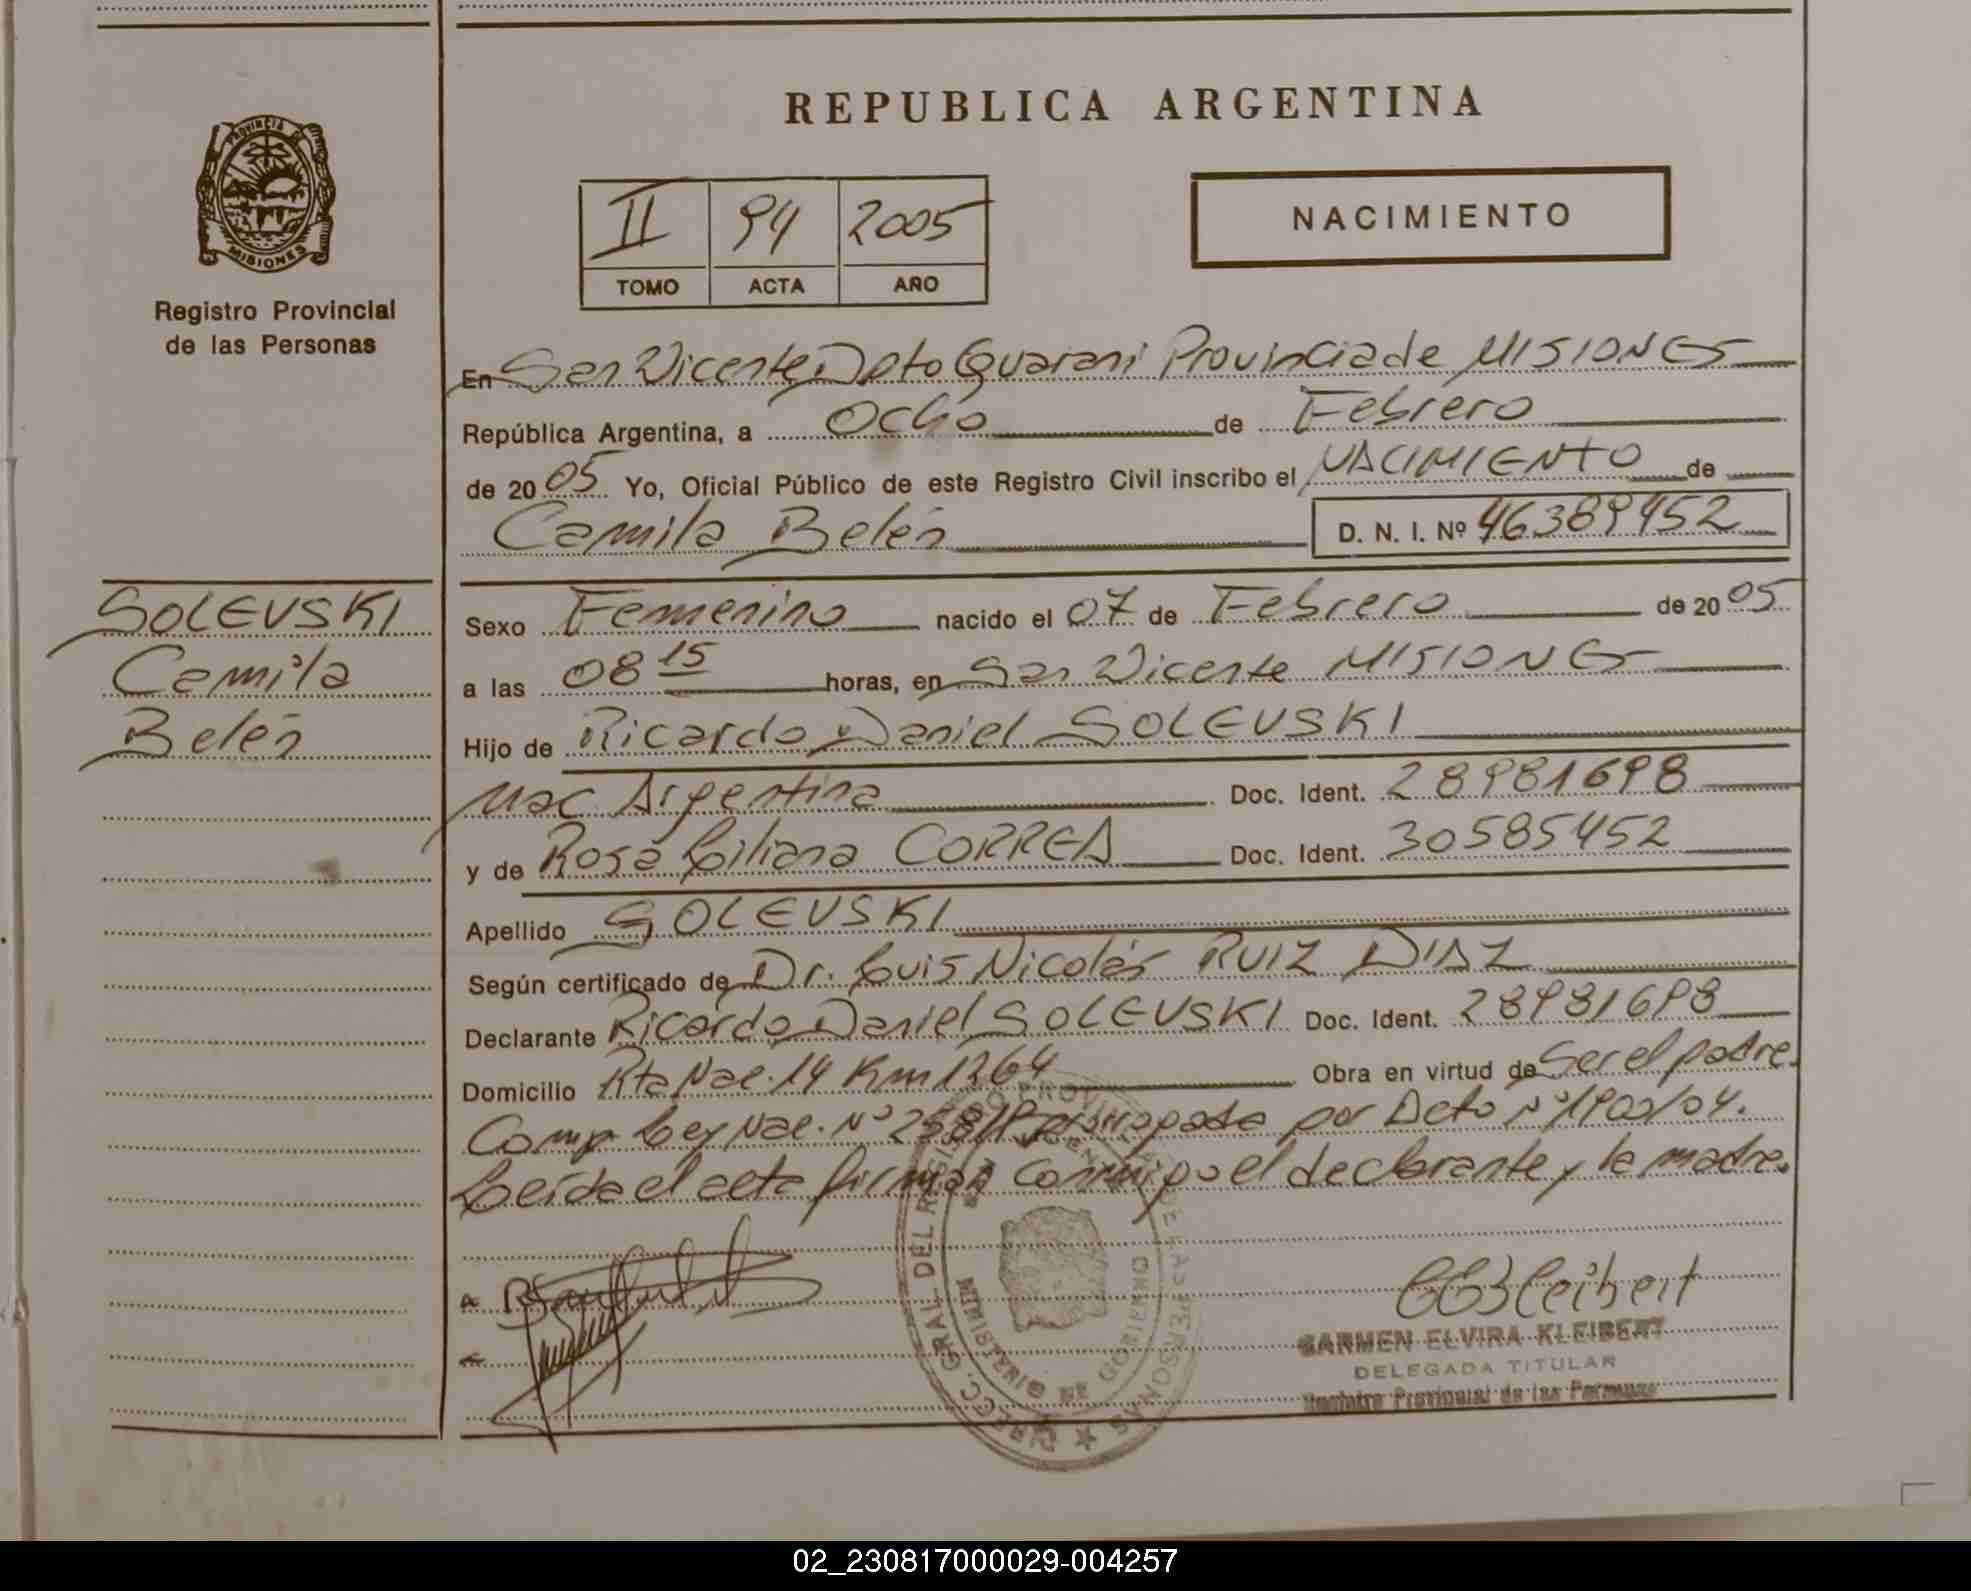 REPUBLICA ARGENTINA
PROVINCIA DE MISIONES
Registro Provincial
de las Personas
II 94 2005
TOMO ACTA AÑO
NACIMIENTO
En San Vicente Dpto Guaraní Provincia de MISIONES
República Argentina, a Ocho de Febrero
de 2005 Yo, Oficial Público de este Registro Civil inscribo el NACIMIENTO de
Camila Belén D. N. I. Nº 46389452
SOLEVSKI
Camila
Belén
Sexo Femenino nacido el 07 de Febrero de 2005
a las 08 15 horas, en San Vicente MISIONES
Hijo de Ricardo Daniel SOLEVSKI
Nac Argentina Doc. Ident. 28981698
y de Rosa Liliana CORREA Doc. Ident. 30585452
Apellido SOLEVSKI
Según certificado de Dr. Luis Nicolás RUIZ DIAZ
Declarante Ricardo Daniel SOLEVSKI Doc. Ident. 28981698
Domicilio Rta Nac. 14 Km 1264 Obra en virtud de Ser el padre.
Comp Ley Nac. Nº 25819 prorrogada por Dcto Nº 1900/04.
Leída el acta firman conmigo el declarante y la madre.
DIRECC. GRAL. DEL REGISTRO PROV. DE LAS PERSONAS
MINISTERIO DE GOBIERNO
CEKleibert
CARMEN ELVIRA KLEIBERT
DELEGADA TITULAR
Registro Provincial de las Personas
02_230817000029-004257